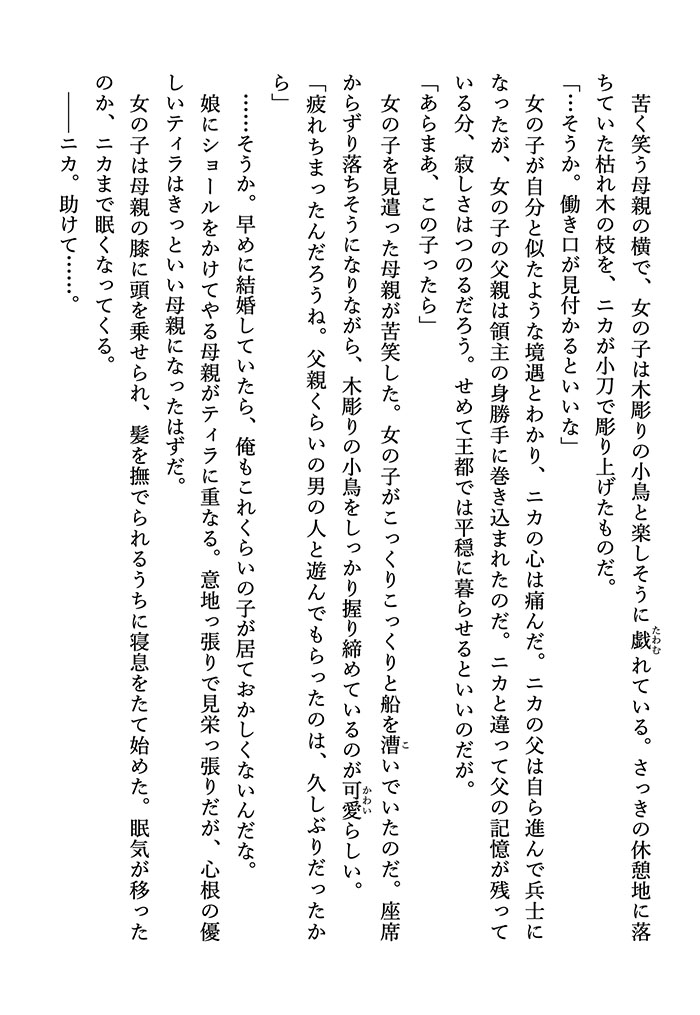 苦く笑う母親の横で、女の子は木彫りの小鳥と楽しそうに戯れている。さっきの休憩地に落
ちていた枯れ木の枝を、ニカが小刀で彫り上げたものだ。
「…そうか。働き口が見付かるといいな」
女の子が自分と似たような境遇とわかり、ニカの心は痛んだ。ニカの父は自ら進んで兵士に
なったが、女の子の父親は領主の身勝手に巻き込まれたのだ。ニカと違って父の記憶が残って
いる分、寂しさはつのるだろう。せめて王都では平穏に暮らせるといいのだが。
「あらまあ、この子ったら」
女の子を見遣った母親が苦笑した。女の子がこっくりこっくりと船を漕いでいたのだ。座席
からずり落ちそうになりながら、木彫りの小鳥をしっかり握り締めているのが可愛らしい。
「疲れちまったんだろうね。父親くらいの男の人と遊んでもらったのは、久しぶりだったか
ら」
……そうか。早めに結婚していたら、俺もこれくらいの子が居ておかしくないんだな。
娘にショールをかけてやる母親がティラに重なる。意地っ張りで見栄っ張りだが、心根の優
しいティラはきっといい母親になったはずだ。
女の子は母親の膝に頭を乗せられ、髪を撫でられるうちに寝息をたて始めた。眠気が移った
のか、ニカまで眠くなってくる。
――ニカ。助けて……。